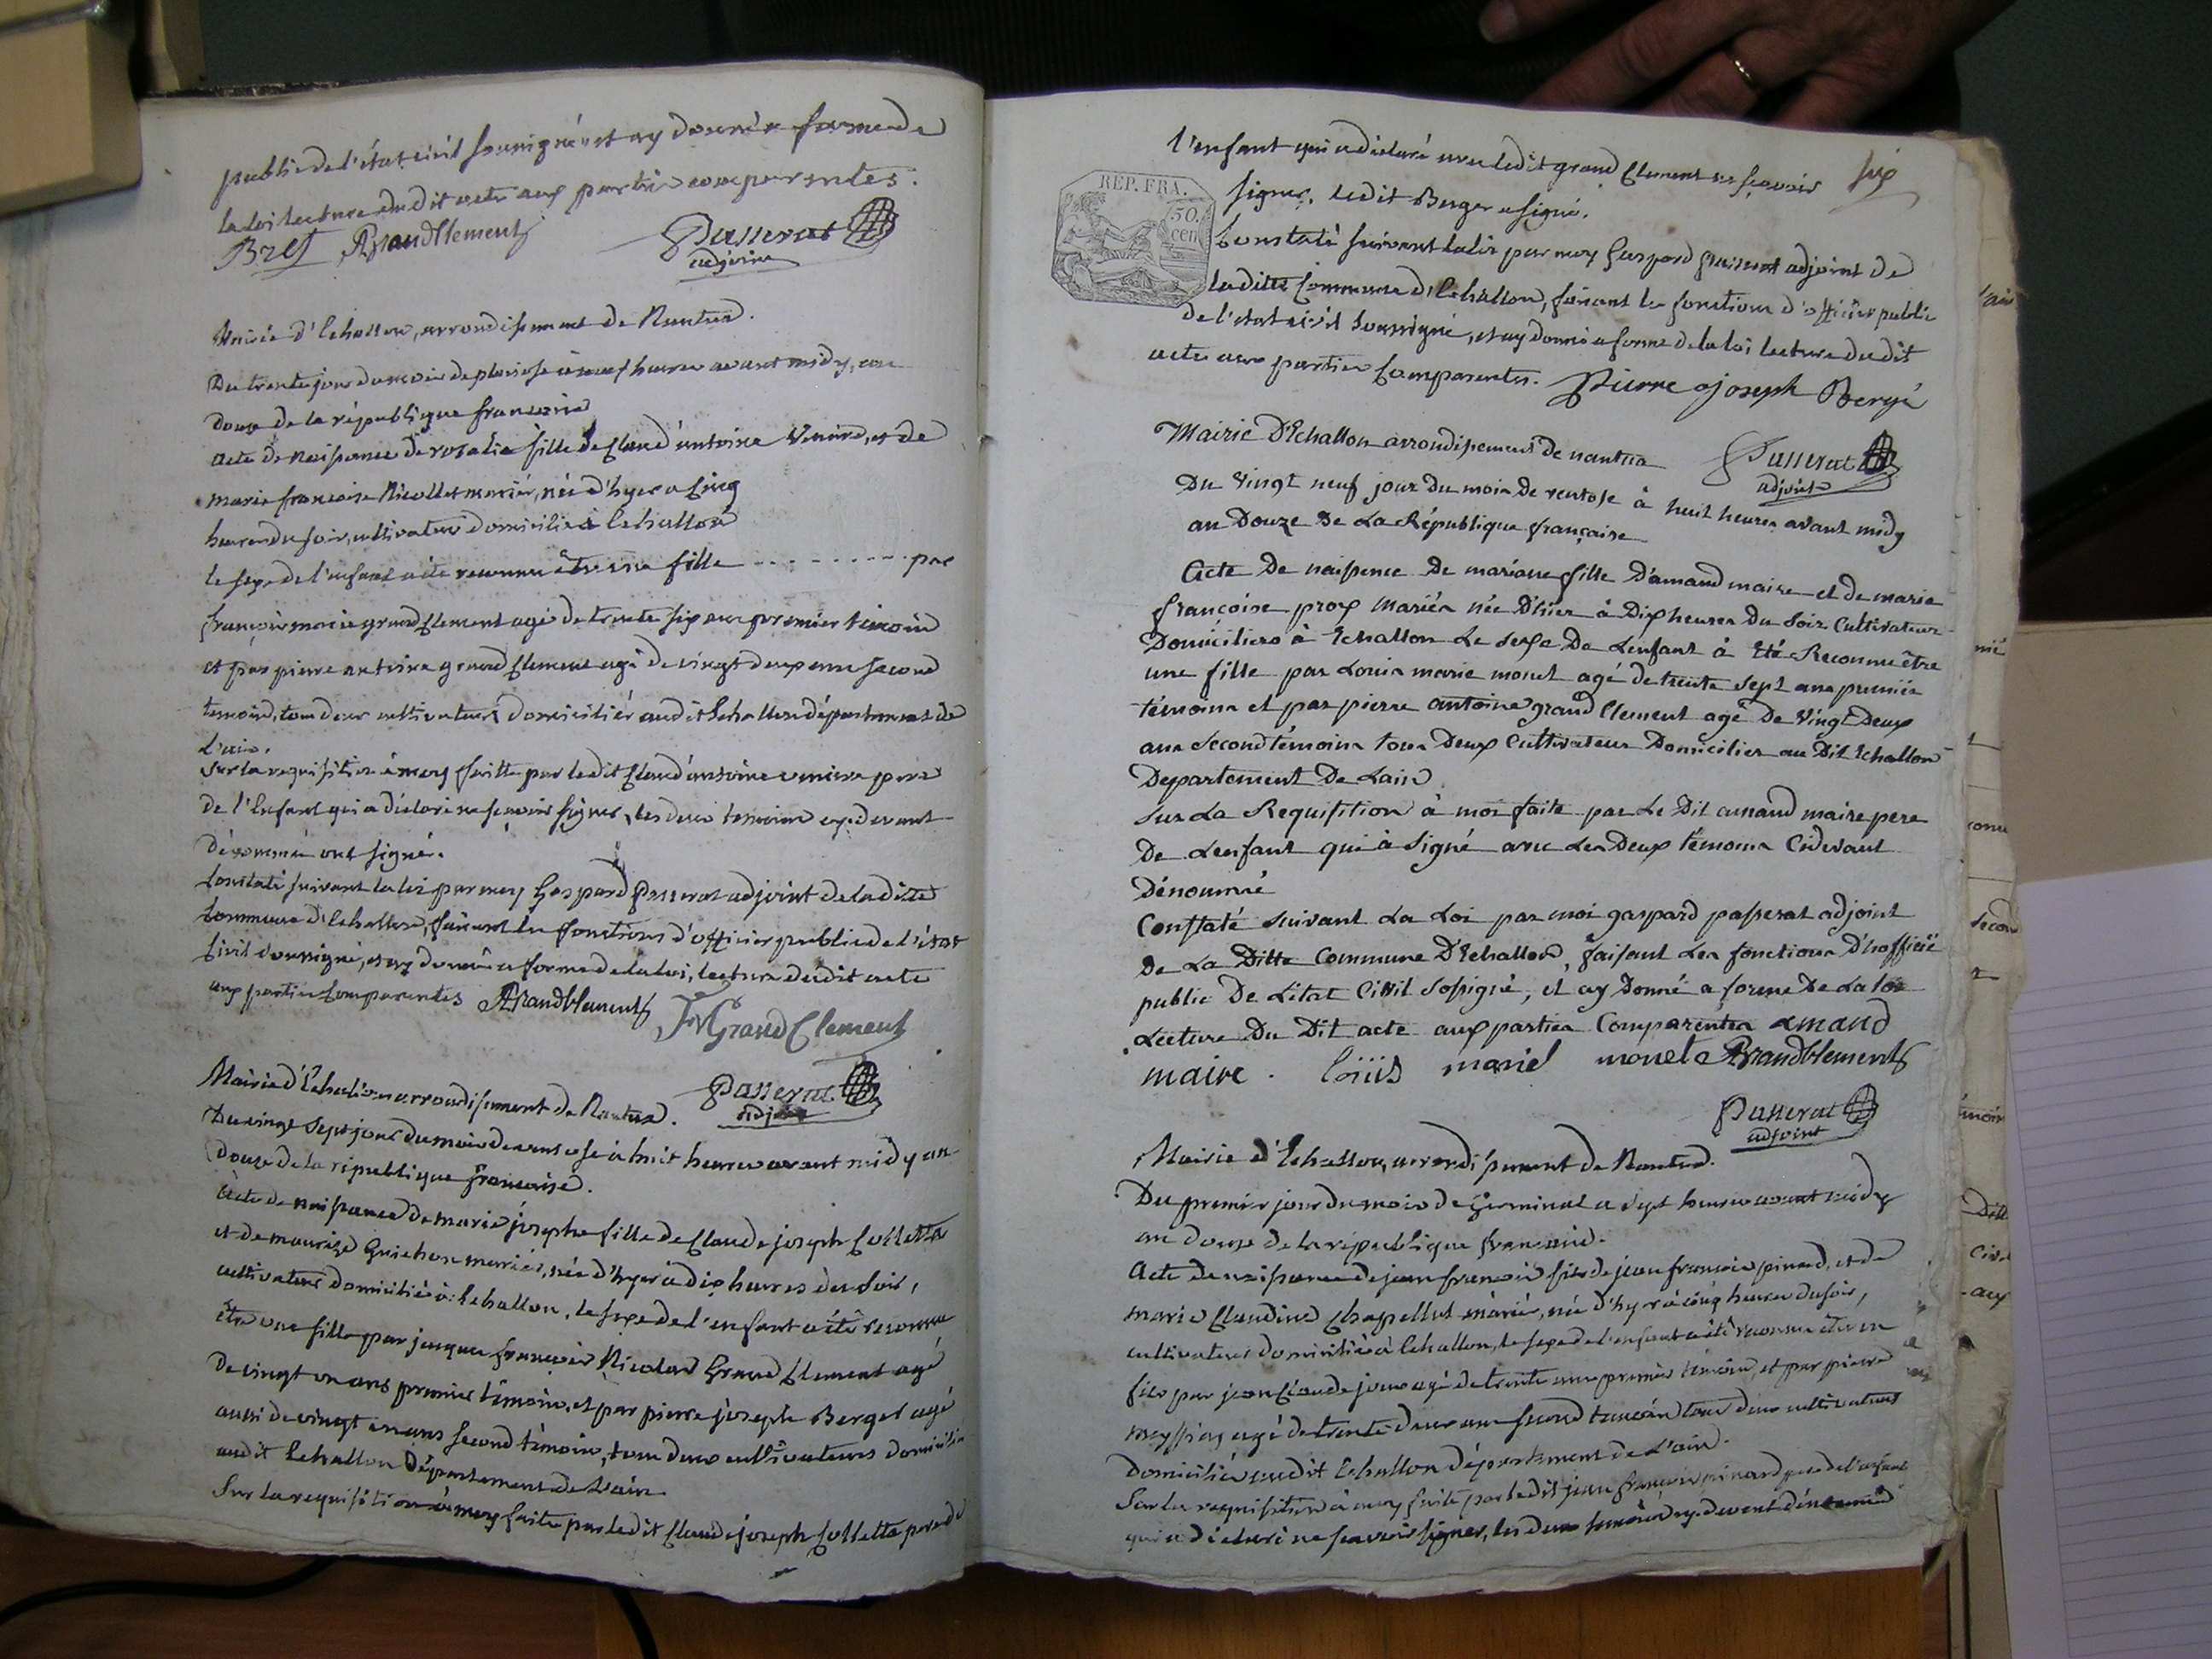 public de l'état civil soussigné et ay donné a forme de
la loi lecture du dit acte aux parties comparentes.
AGrandClement
Passerat
adjoint
Mairie d'Echallon, arrondissement de Nantua.
Du trente jour du mois de pluviose à neuf heures avant midy, an
douze de la république francoise
acte de naissance de rosalie fille de Claud'antoine et de
marie francoise Nicollet mariés, née d'hyer a cinq
heures du soir, cultivateur domicilié à Echallon
le sexe de l'enfant a été reconnu être une fille - - - - - - - - - par
françois marie grand Clement agé de trente six ans premier témoin
et par pierre antoine grand Clement agé de vingt deux ans second
temoins, tous deux cultivateurs domiciliés audit Echallon département de
l'ain.
sur la requisition à moy faitte par ledit Claud'antoine pere
de l'Enfant qui a déclaré ne scavoir signer, les deux temoins cy devant
dénommés ont signé.
Constaté suivant la loi par moy Gaspard Passerat adjoint de la ditte
Commune d'Echallon, faisant les fonctions d'officier public de l'état
Civil soussigné, et ay donné a forme de la loi, lecture dudit acte
aux parties Comparentes AGrandClement
FMGrandClement
Passerat
adjoint
Mairie d'Echallon arrondissement de Nantua.
Du vingt sept jour du mois de ventose à huit heures avant midy an
douze de la république francoise.
Acte de naissance de marie josephe fille de Claude joseph Collette
et de Guichon mariés, née d'hyer à dix heures du soir,
cultivateur domicilié à Echallon, le sexe de l'enfant a été reconnu
être une fille par jacques françois Nicolas Grand Clement agé
de vingt un ans premier témoin, et par pierre joseph Berger agé
aussi de vingt un ans second témoin, tous deux cultivateurs domiciliés
audit Echallon Département de L'ain.
Sur la requisition à moy faite par ledit Claude joseph Collette pere de
l'enfant qui a déclaré avec ledit grand Clement ne scavoir
six
signer, ledit Berger a signé.
REP. FRA.
50.
cen
Constaté suivant la loi par moy Gaspard Passerat adjoint de
laditte Commune d'Echallon, faisant les fonctions d'officier public
de l'etat civil soussigné, et ay donné a forme de la loi lecture du dit
acte aux parties Comparentes. Pierre joseph Bergé
Passerat
adjoint
Mairie D'Echallon arrondissement de nantua
Du vingt neuf jour du mois de ventose à huit heures avant midy
an Douze De La République française
Acte De naissence De mariane fille D'amand maire et de marie
françoise prox mariés née D'hier à Dix heures du Soir Cultivateur
Domiciliers à Echallon Le sexe De L'enfant à Eté Reconnu être
une fille par Louis marie monet agé de trente sept ans premier
témoins et par pierre antoine grand Clement agé De vingt Deux
ans Second témoins tous Deux Cultivateurs Domiciliés au Dit Echallon
Departement De Lain
sur La Requisition à moi faite par Le Dit amand maire pere
De Lenfant qui à Signé avec Les Deux témoins Cidevant
Dénommé
Constaté Suivant La Loi par moi gaspard passerat adjoint
De La Ditte Commune D'Echallon, faisant Les fonctions
public De Létat Civil Sosigné, et ay Donné a forme De La loi
Lecture Du Dit acte aux parties Comparentes amand
maire . monet AGrandClement
Passerat
adjoint
Mairie d'Echallon, arrondissement de Nantua.
Du premier jour du mois de Germinal a sept heures avant midy
an douze de la république francoise.
Acte de naissance de jean françois fils de jean françois pinard, et de
marie Claudine Chapellut mariés, né d'hyr à cinq heures du soir,
cultivateur domicilié à Echallon, le sexe de l'enfant a été reconnu être un
fils par jean Claude agé de trente ans premier témoin, et par pierre
agé de trente deux ans second temoin tous deux cultivateurs
domiciliés audit Echallon département de L'ain.
Sur la requisition à moy faite par ledit jean françois pinard pere de l'enfant
qui a déclaré ne scavoir signer, les deux temoins cy devant dénommé